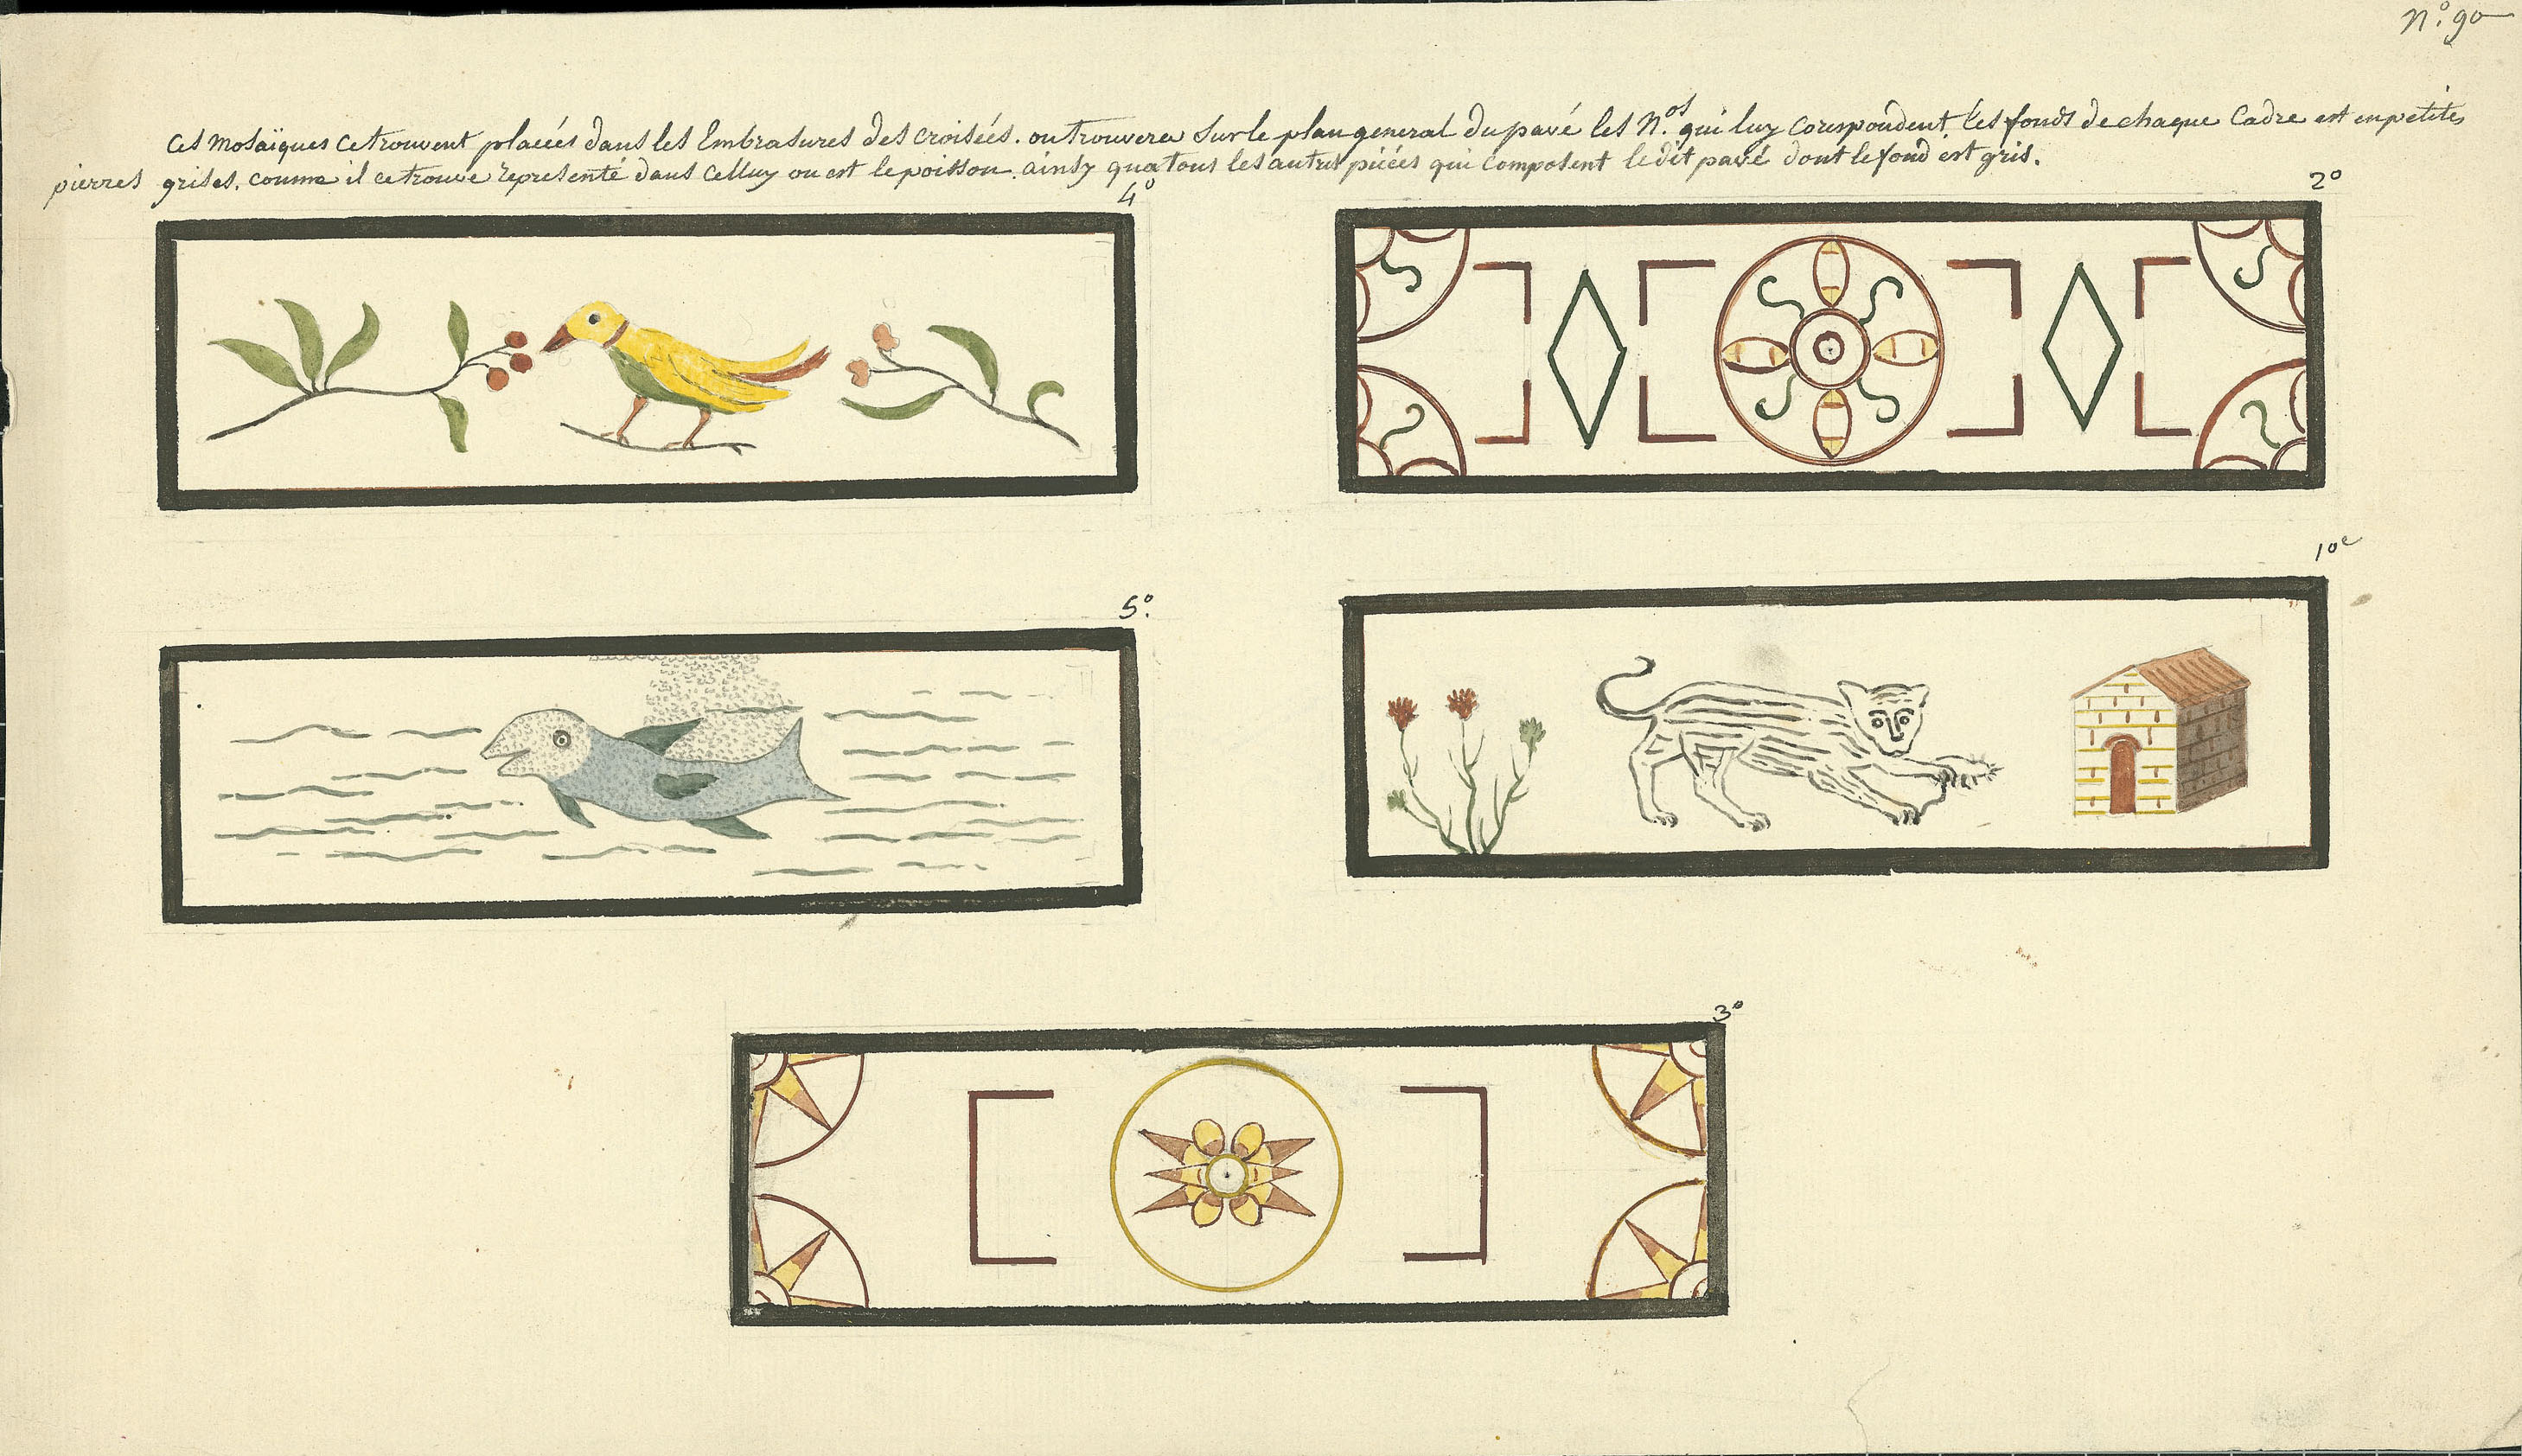 N.º 90
Ces Mosaïques ce trouvent placées dans les Embrasures des croisées. on trouvera sur le plan general du pavé les N.os qui luy corespondent. les fonds de chaque Cadre est en petites
pierres grises. comme il ce trouve representé dans celluy ou est le poisson. ainsy qua tous les autres piéces qui composent le dit pavé dont le fond est gris.
4º
2º
5º.
10e
3º